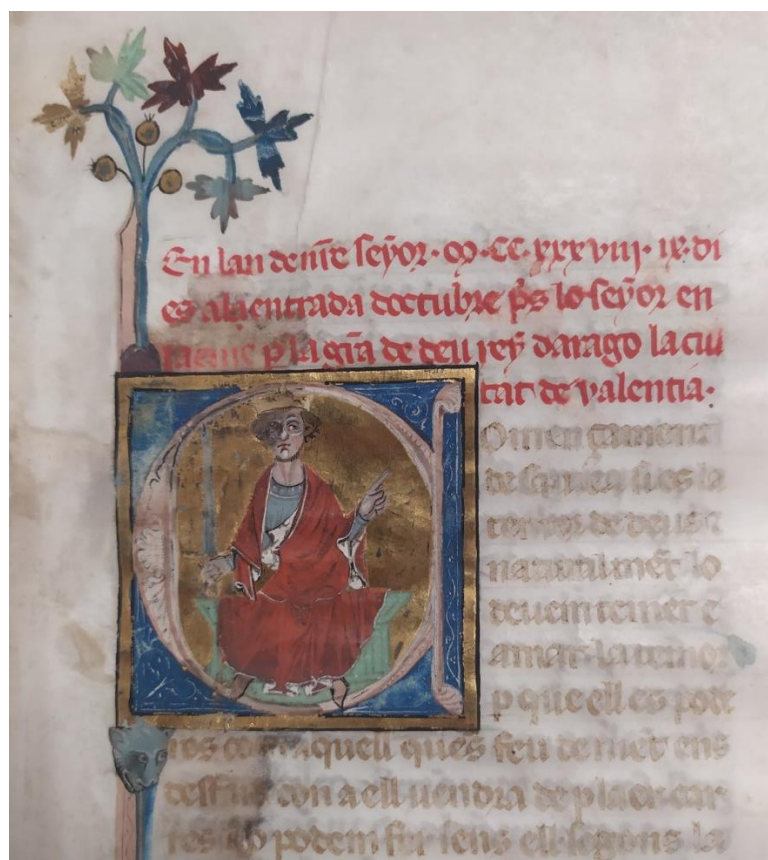 En lan de nr̃e seÿor · m · cc · xxxviii · ix · di
es a la entrada doctubre p̃s lo seÿor en
iacme p la gr̃a de deu reÿ darago la ciu
tat de valentia ·
Omençament
de sapiencia si es la
temor de deu e
naturalmẽt lo
deuem temer e
amar · la temor
p que ell es pode
ros contra aquell ques feu de mẽt ens
con a ell uendra de plaer car
res no podem fer sens ell · segons la